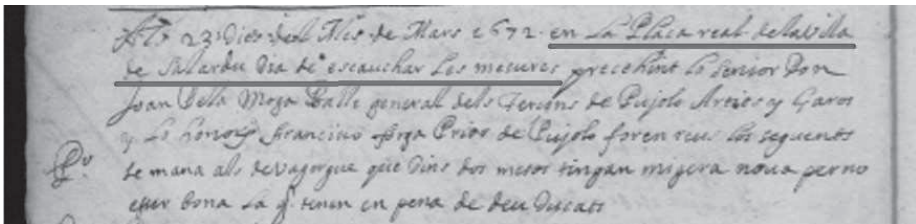 Als 23 Dies del Mes de Mars 1672 en La Plaça real dela villa
de Salardu Dia de escauchar Les mesures precehint lo senior Don
Joan Della Moga Balle general dels Tersons de Pujolo Arties y Garos
y Lo honor Francisco Prior de Pujolo foren los seguents
se mana als de vagergue que dins dos mesos tingan migera noua perno
esser bona La q. tenen en pena de deu Ducats